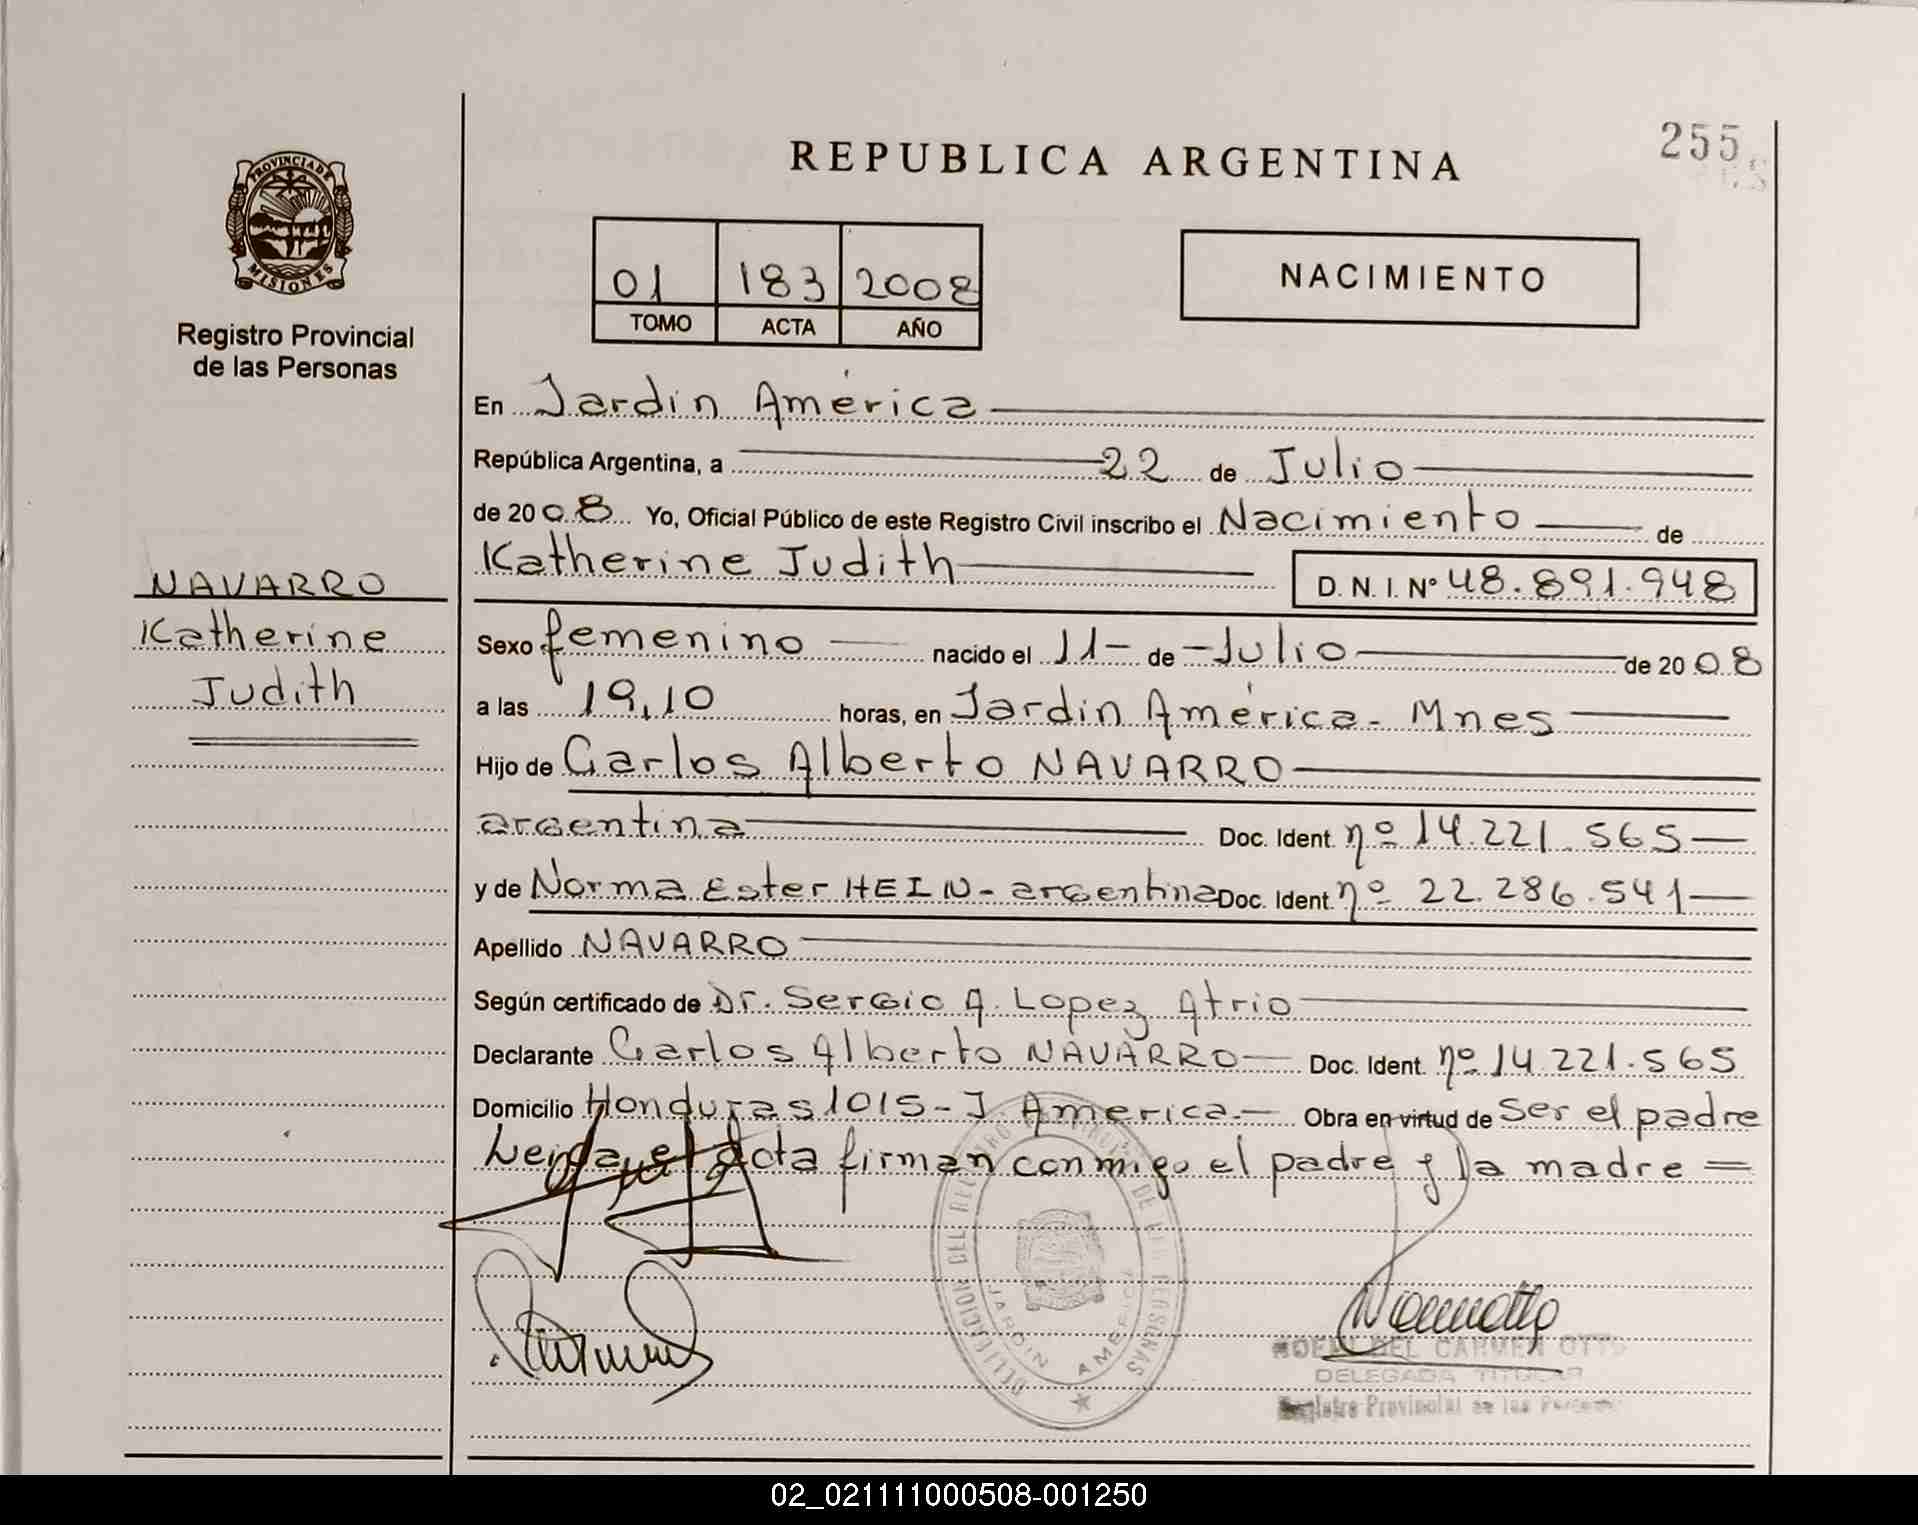 255
REPUBLICA ARGENTINA
PROVINCIA DE
MISIONES
Registro Provincial
de las Personas
01 183 2008
TOMO ACTA AÑO
NACIMIENTO
NAVARRO
Katherine
Judith
En Jardín América
República Argentina, a 22 de Julio
de 2008 Yo, Oficial Público de este Registro Civil inscribo el Nacimiento de
Katherine Judith D. N. I. Nº 48.891.948
Sexo femenino nacido el 11 - de - Julio de 2008
a las 19,10 horas, en Jardín América - Mnes
Hijo de Carlos Alberto NAVARRO
argentina Doc. Ident. nº 14.221.565
y de Norma Ester HEIN - argentina Doc. Ident. nº 22.286.541
Apellido NAVARRO
Según certificado de Dr. Sergio A. Lopez Atrio
Declarante Carlos Alberto NAVARRO Doc. Ident. nº 14.221.565
Domicilio Honduras 1015 - J. America Obra en virtud de ser el padre
Leida el acta firman conmigo el padre y la madre =
DELEGACION DEL REGISTRO PROVINCIAL DE LAS PERSONAS
JARDIN AMERICA
NOEMI DEL CARMEN OTTO
DELEGADA TITULAR
Registro Provincial de las Personas
02_021111000508-001250